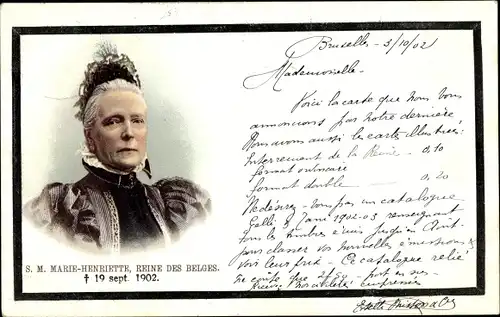 Bruxelles - 3/10/02
Mademoiselle.
Voici la carte que nous vous
annoncions par notre dernière
Nous avons aussi les cartes illustrées:
Enterrement de la Reine. - 0,10
format ordinaire
format double — 0,20
Ne désirez-vous pas un catalogue
1902-03 renseignant
tous les timbres émis jusqu'en Août
pour classer vos nouvelles émissions &
voir leur prix - Ce catalogue relié
ne coûte que 2f50
S. M. MARIE-HENRIETTE, REINE DES BELGES.
† 19 sept. 1902.